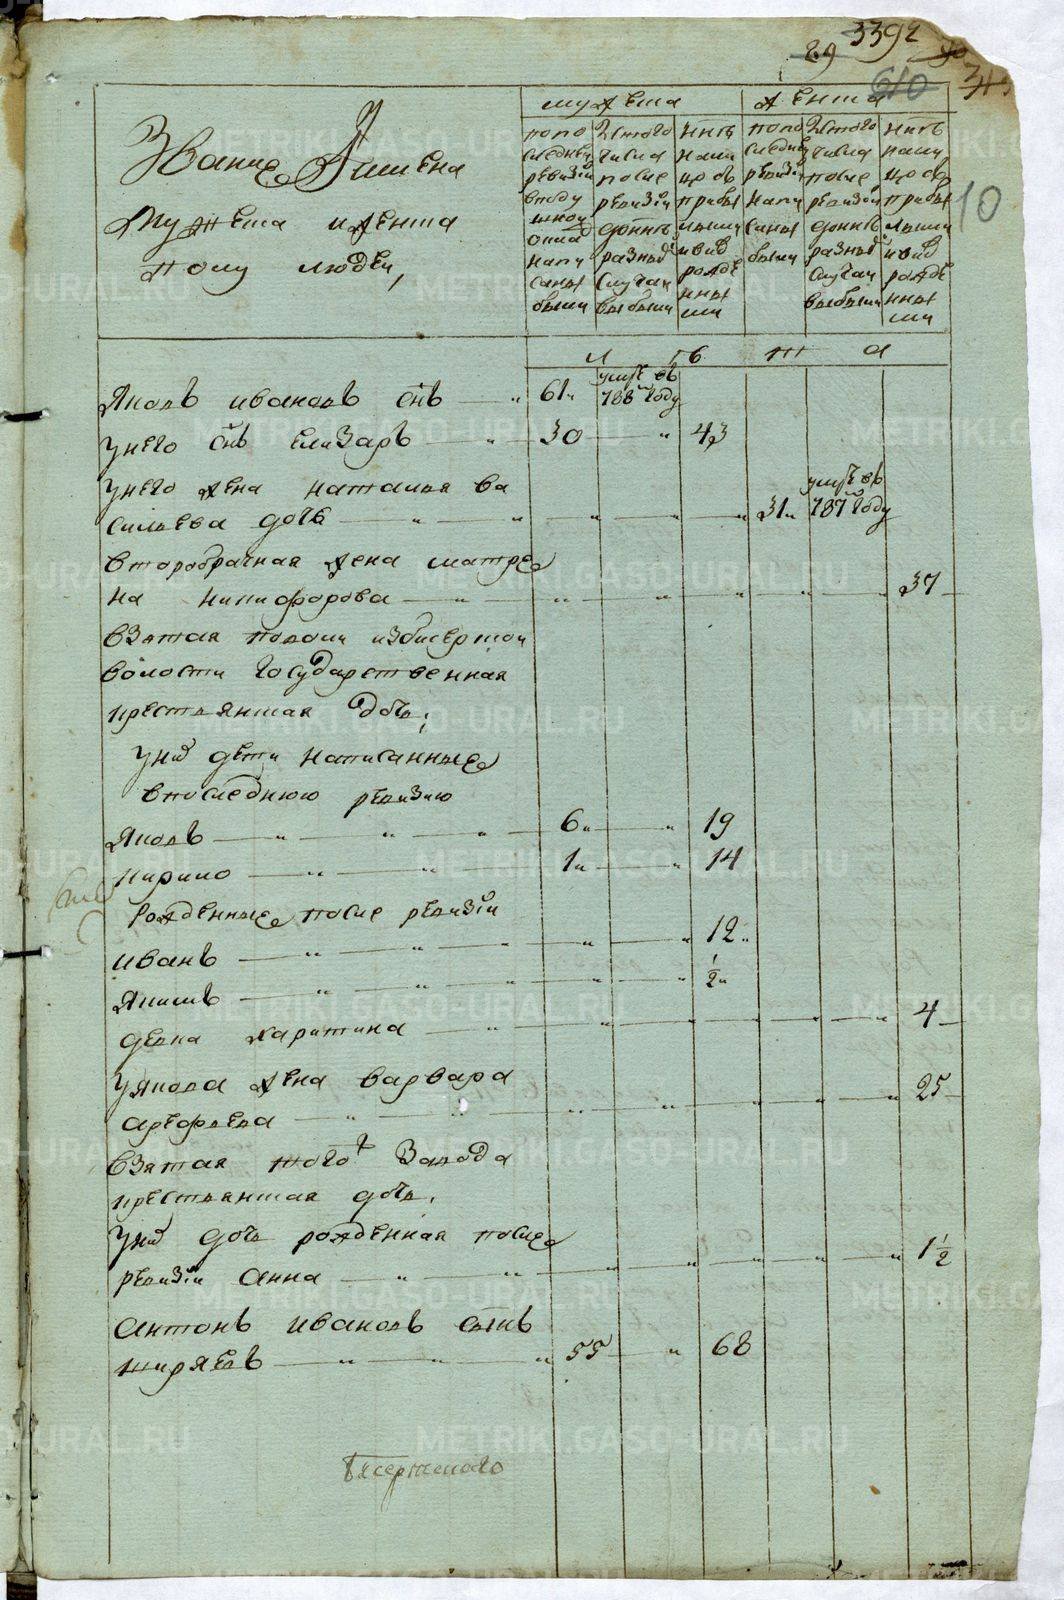 29 3392 30
610 34
10
Званiе и Имена
Мужеска и женска
полу людей,
мужеска
женска
попо
следней
ревизiи
в поду
шной
оклад
напи
саны
были
Из того
числа
после
ревизiи
до ныне
разныя
случаи
выбыли
Ныне
нали
цо съ
прибы
лыми
и внов
рожде
нны
ми
попо
следней
ревизiи
напи
саны
были
Из того
числа
после
ревизiи
до ныне
разныя
случаи
выбыли
Ныне
нали
цо съ
прибы
лыми
и внов
рожде
нны
ми
л ѣ т а
Яковъ Ивановъ снъ 61 умре въ 788м году
У него снъ Елизаръ 30 43
У него жена Наталья Ва
сильева дочь 31 умре въ 787м году
Второбрачная жена Матре
на Никифорова 37
взятая Покоми избисертской
волости Государственная
крестьянская дочь;
У них дети написанные
в последнюю ревизию
Яковъ 6 19
Кирило 1 14
Рожденные после ревизiи
Иванъ 12
Якимъ 1/2
девка Харитина 4
У Якова жена Варвара
Арефьева 25
взятая того ж Завода
крестьянская дочь,
У них дочь рожденная после
ревизiи Анна 1 1/2
Антонъ Ивановъ сынъ
Ширяевъ 55 68
Бисертскаго
METRIKI.GASO-URAL.RU